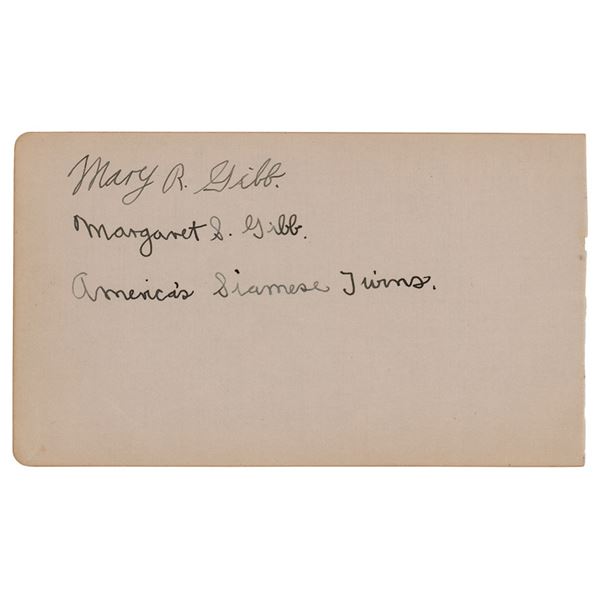 Mary R. Gibb.
Margaret S. Gibb.
America's Siamese Twins.